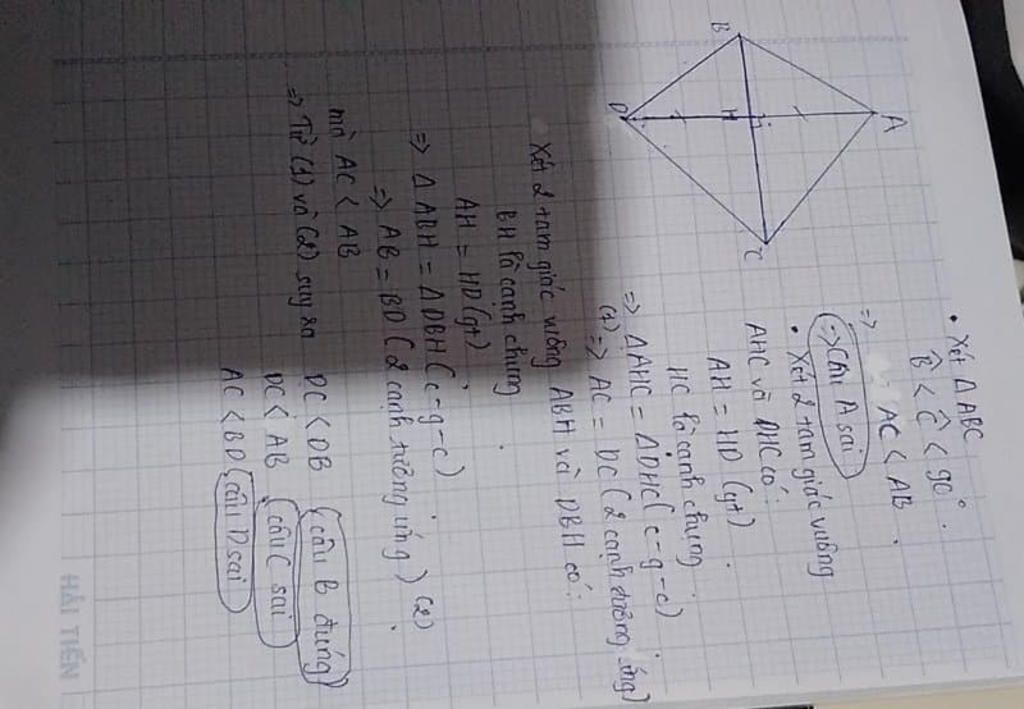 B
A
H
D
C
• Xét ΔABC
B̂ < Ĉ < 90°.
=> AC < AB.
=> Câu A sai
• Xét 2 tam giác vuông
AHC và DHC có:
AH = HD (gt)
HC là cạnh chung
=> ΔAHC = ΔDHC (c-g-c)
(1) => AC = DC (2 cạnh tương ứng)
• Xét 2 tam giác vuông ABH và DBH có:
BH là cạnh chung
AH = HD (gt)
=> ΔABH = ΔDBH (c-g-c)
=> AB = BD (2 cạnh tương ứng) (2)
mà AC < AB
=> Từ (1) và (2) suy ra DC < DB (câu B đúng)
DC < AB (câu C sai)
AC < BD (câu D sai
HẢI TIẾN